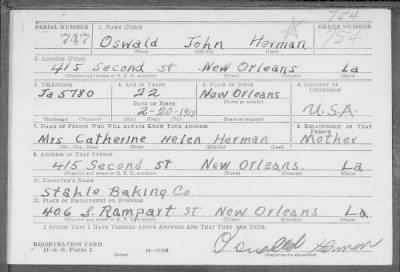 754
SERIAL NUMBER 1. NAME (Print) ORDER NUMBER
747 Oswald John Herman 754
(First) (Middle) (Last)
2. ADDRESS (Print)
415 Second st New Orleans La
(Number and street or R. F. D. number) (Town) (County) (State)
3. TELEPHONE 4. AGE IN YEARS 5. PLACE OF BIRTH 6. COUNTRY OF CITIZENSHIP
Ja 5780 22 New Orleans
DATE OF BIRTH (Town or county)
2-20-1918 U.S.A.
(Exchange) (Number) (Mo.) (Day) (Yr.) (State or country)
7. NAME OF PERSON WHO WILL ALWAYS KNOW YOUR ADDRESS 8. RELATIONSHIP OF THAT PERSON
Mrs Catherine Helen Herman Mother
(Mr., Mrs., Miss) (First) (Middle) (Last)
9. ADDRESS OF THAT PERSON
415 Second st New Orleans La
(Number and street or R. F. D. number) (Town) (County) (State)
10. EMPLOYER'S NAME
Stahle Baking Co
11. PLACE OF EMPLOYMENT OR BUSINESS
406 S. Rampart st New Orleans La
(Number and street or R. F. D. number) (Town) (County) (State)
I AFFIRM THAT I HAVE VERIFIED ABOVE ANSWERS AND THAT THEY ARE TRUE.
Oswald Herman
REGISTRATION CARD
D. S. S. Form 1 (over) (Registrant's signature)